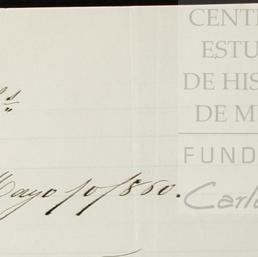 CENT
ESTU
DE HIS
DE M
FUND
Carl
Mayo 10/860.